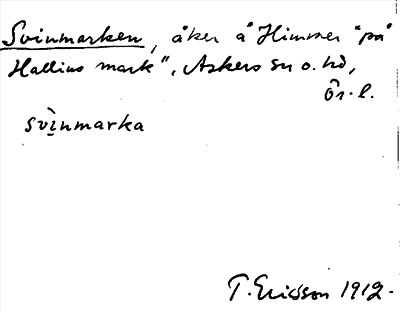 Svinmarken, åker å Himmer "på
Hallins mark", Askers sn o. hd,
Ör. l.
svìnmarka
T. Ericsson 1912.